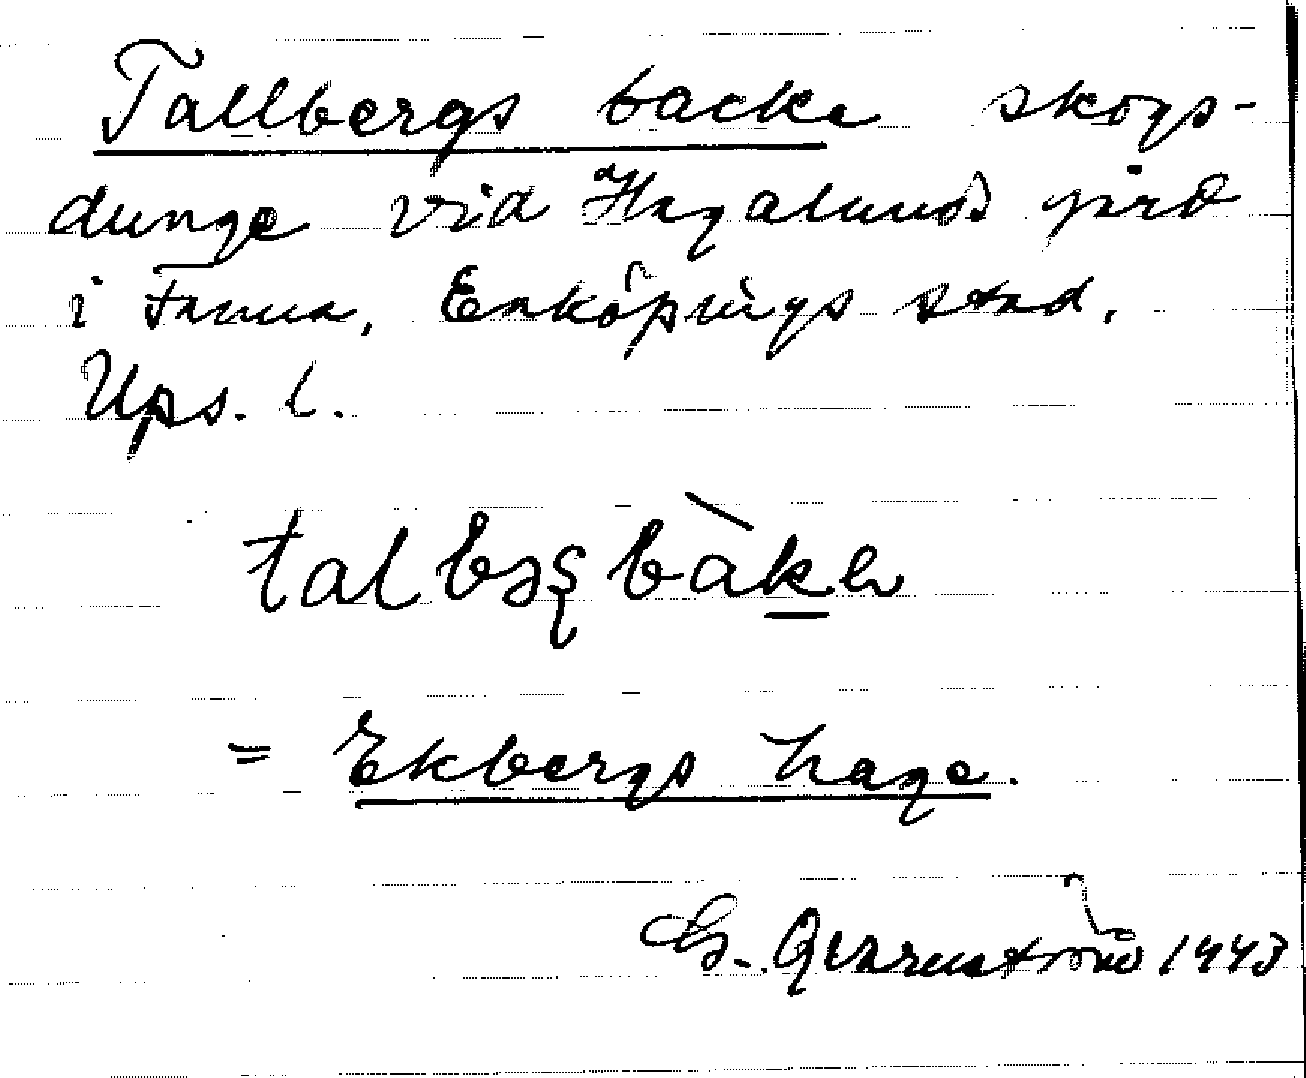 Tallbergs backe skogs-
dunge vid Hagalunds gård
i Fanna, Enköpings stad.
Ups. l.
= Ekbergs hage.
G. Qvarnström 1943